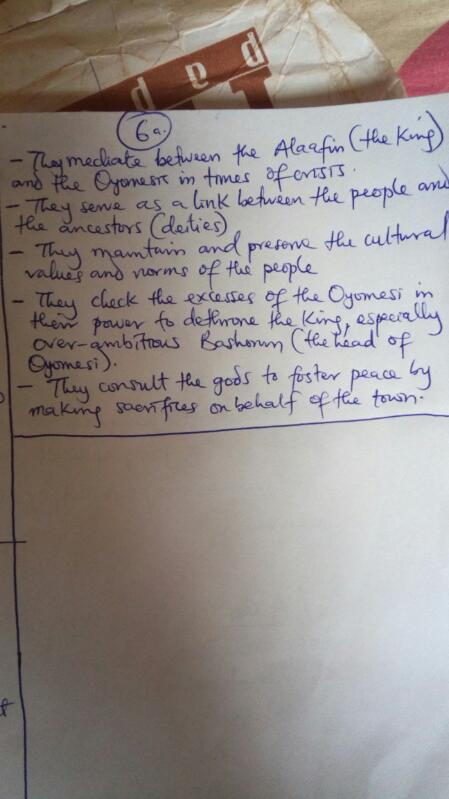 pad
6a.
- They mediate between the Alaafin (the King)
and the Oyomesis in times of crisis.
- They serve as a link between the people and
the ancestors (deities)
- They maintain and preserve the cultural
values and norms of the people
- They check the excesses of the Oyomesi in
their power to dethrone the King, especially
over-ambitious Bashorun (the head of
Oyomesi).
- They consult the gods to foster peace by
making sacrifices on behalf of the town.